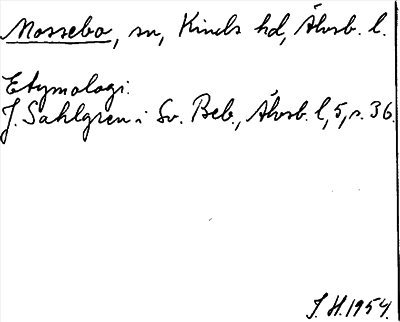 Mossebo, sn, Kinds hd, Älvsb. l.
Etymologi:
J. Sahlgren i Sv. Beb., Älvsb. l, 5, s. 36.
J. H. 1954.